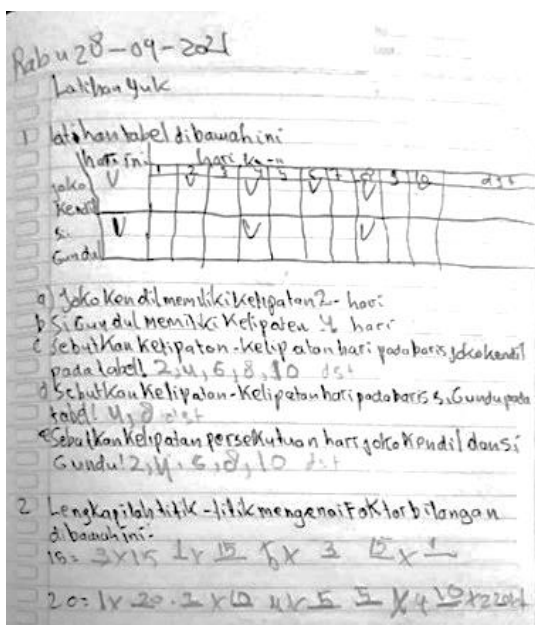 Rabu 28-09-2021
Latihan yuk
1 latihan tabel dibawah ini
hari ini hari ke-n
1 2 3 4 5 6 7 8 9 10 dst
Joko V V V V V
Kendil
Si V V V
Gundul
a) Joko Kendil memiliki Kelipatan 2- hari
b Si Gundul memiliki Kelipatan 4 hari
c Sebutkan Kelipatan-Kelipatan hari pada baris Joko kendil
pada tabel! 2, 4, 6, 8, 10 dst
d Sebutkan Kelipatan-Kelipatan hari pada baris si Gundu pada
tabel! 4, 8 dst
e Sebutkan kelipatan persekutuan hari joko Kendil dan si
Gundu! 2, 4, 6, 8, 10 dst
2 Lengkapilah titik-titik mengenai Faktor bilangan
dibawah ini-
15= 3x15 1x 15 5x 3 15 x 1
20= 1x 20. 2 x 10 4x 5 5 x 4 10 x2 20x1